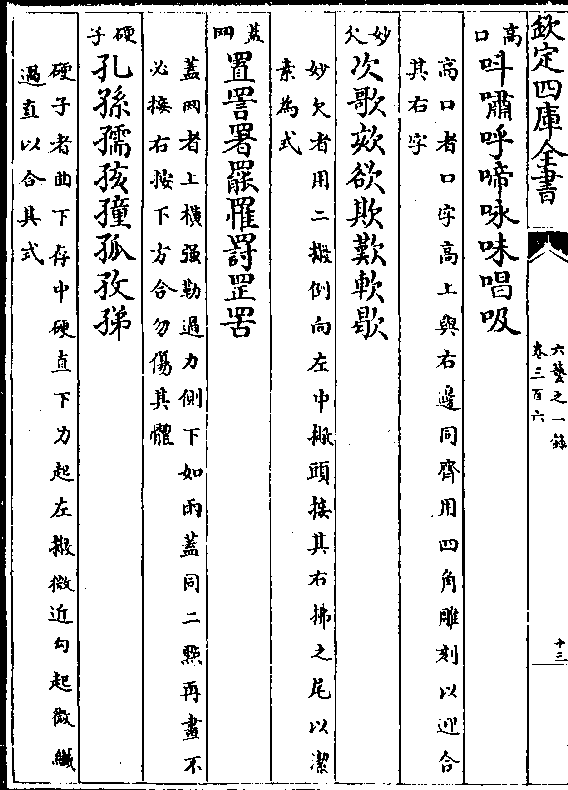 欽定四庫全書
六藝之一錄
卷三百六
十三
高口
呌嘯呼啼咏味唱吸
高口者口字高上與右邉同齊用四角雕刻以迎合
其右字
妙欠
次歌欬欲欺歎軟歇
妙欠者用二撥倒向左中撇頭接其右拂之尾以潔
素為式
葢网
置詈署罷罹罸罡罟
蓋网者上橫强勒過力側下如雨蓋同二㸃再畫不
必接右按下方合勿傷其懼
硬子
孔孫孺孩㙜孤孜孡
硬子者曲下存中硬直下力起左撥微近勾起微纎
過直以合其式